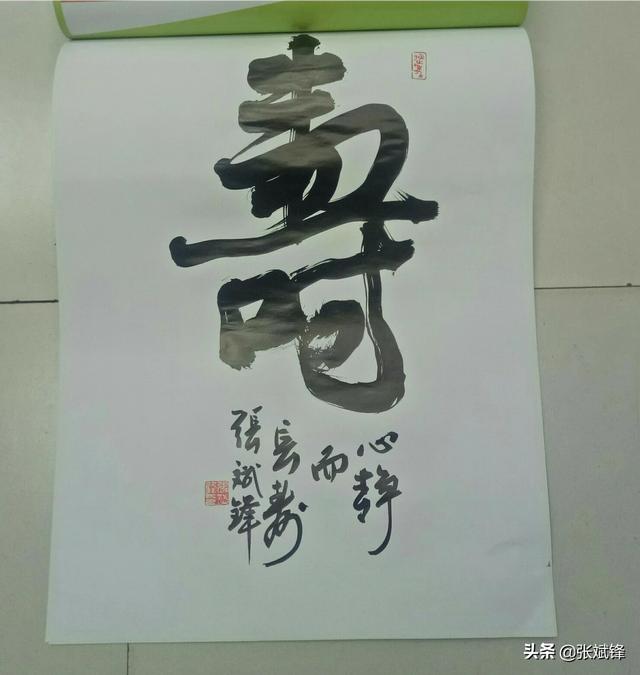 壽
心静
而
長壽
張斌鋒
头条 @张斌锋